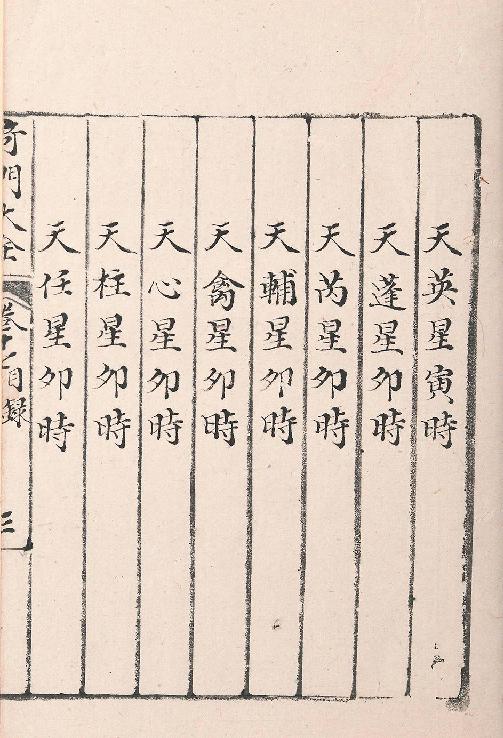 天英星寅時
天蓬星卯時
天芮星卯時
天輔星卯時
天禽星卯時
天心星卯時
天柱星卯時
天任星卯時
奇門大全
目録
三